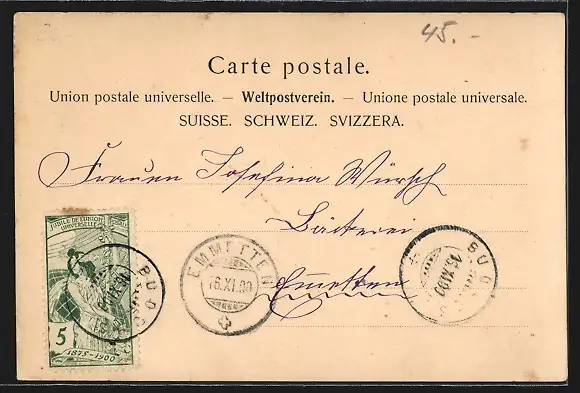 45.-
Carte postale.
Union postale universelle. — Weltpostverein. — Unione postale universale.
SUISSE. SCHWEIZ. SVIZZERA.
Frauen Josefina Würsch
Bäckerei
Emetten
JUBILÉ DE L'UNION POSTALE
UNIVERSELLE
5
1875-1900
BUOCHS
EMMETTEN
16.XI.00
BUOCHS
15.XI.00